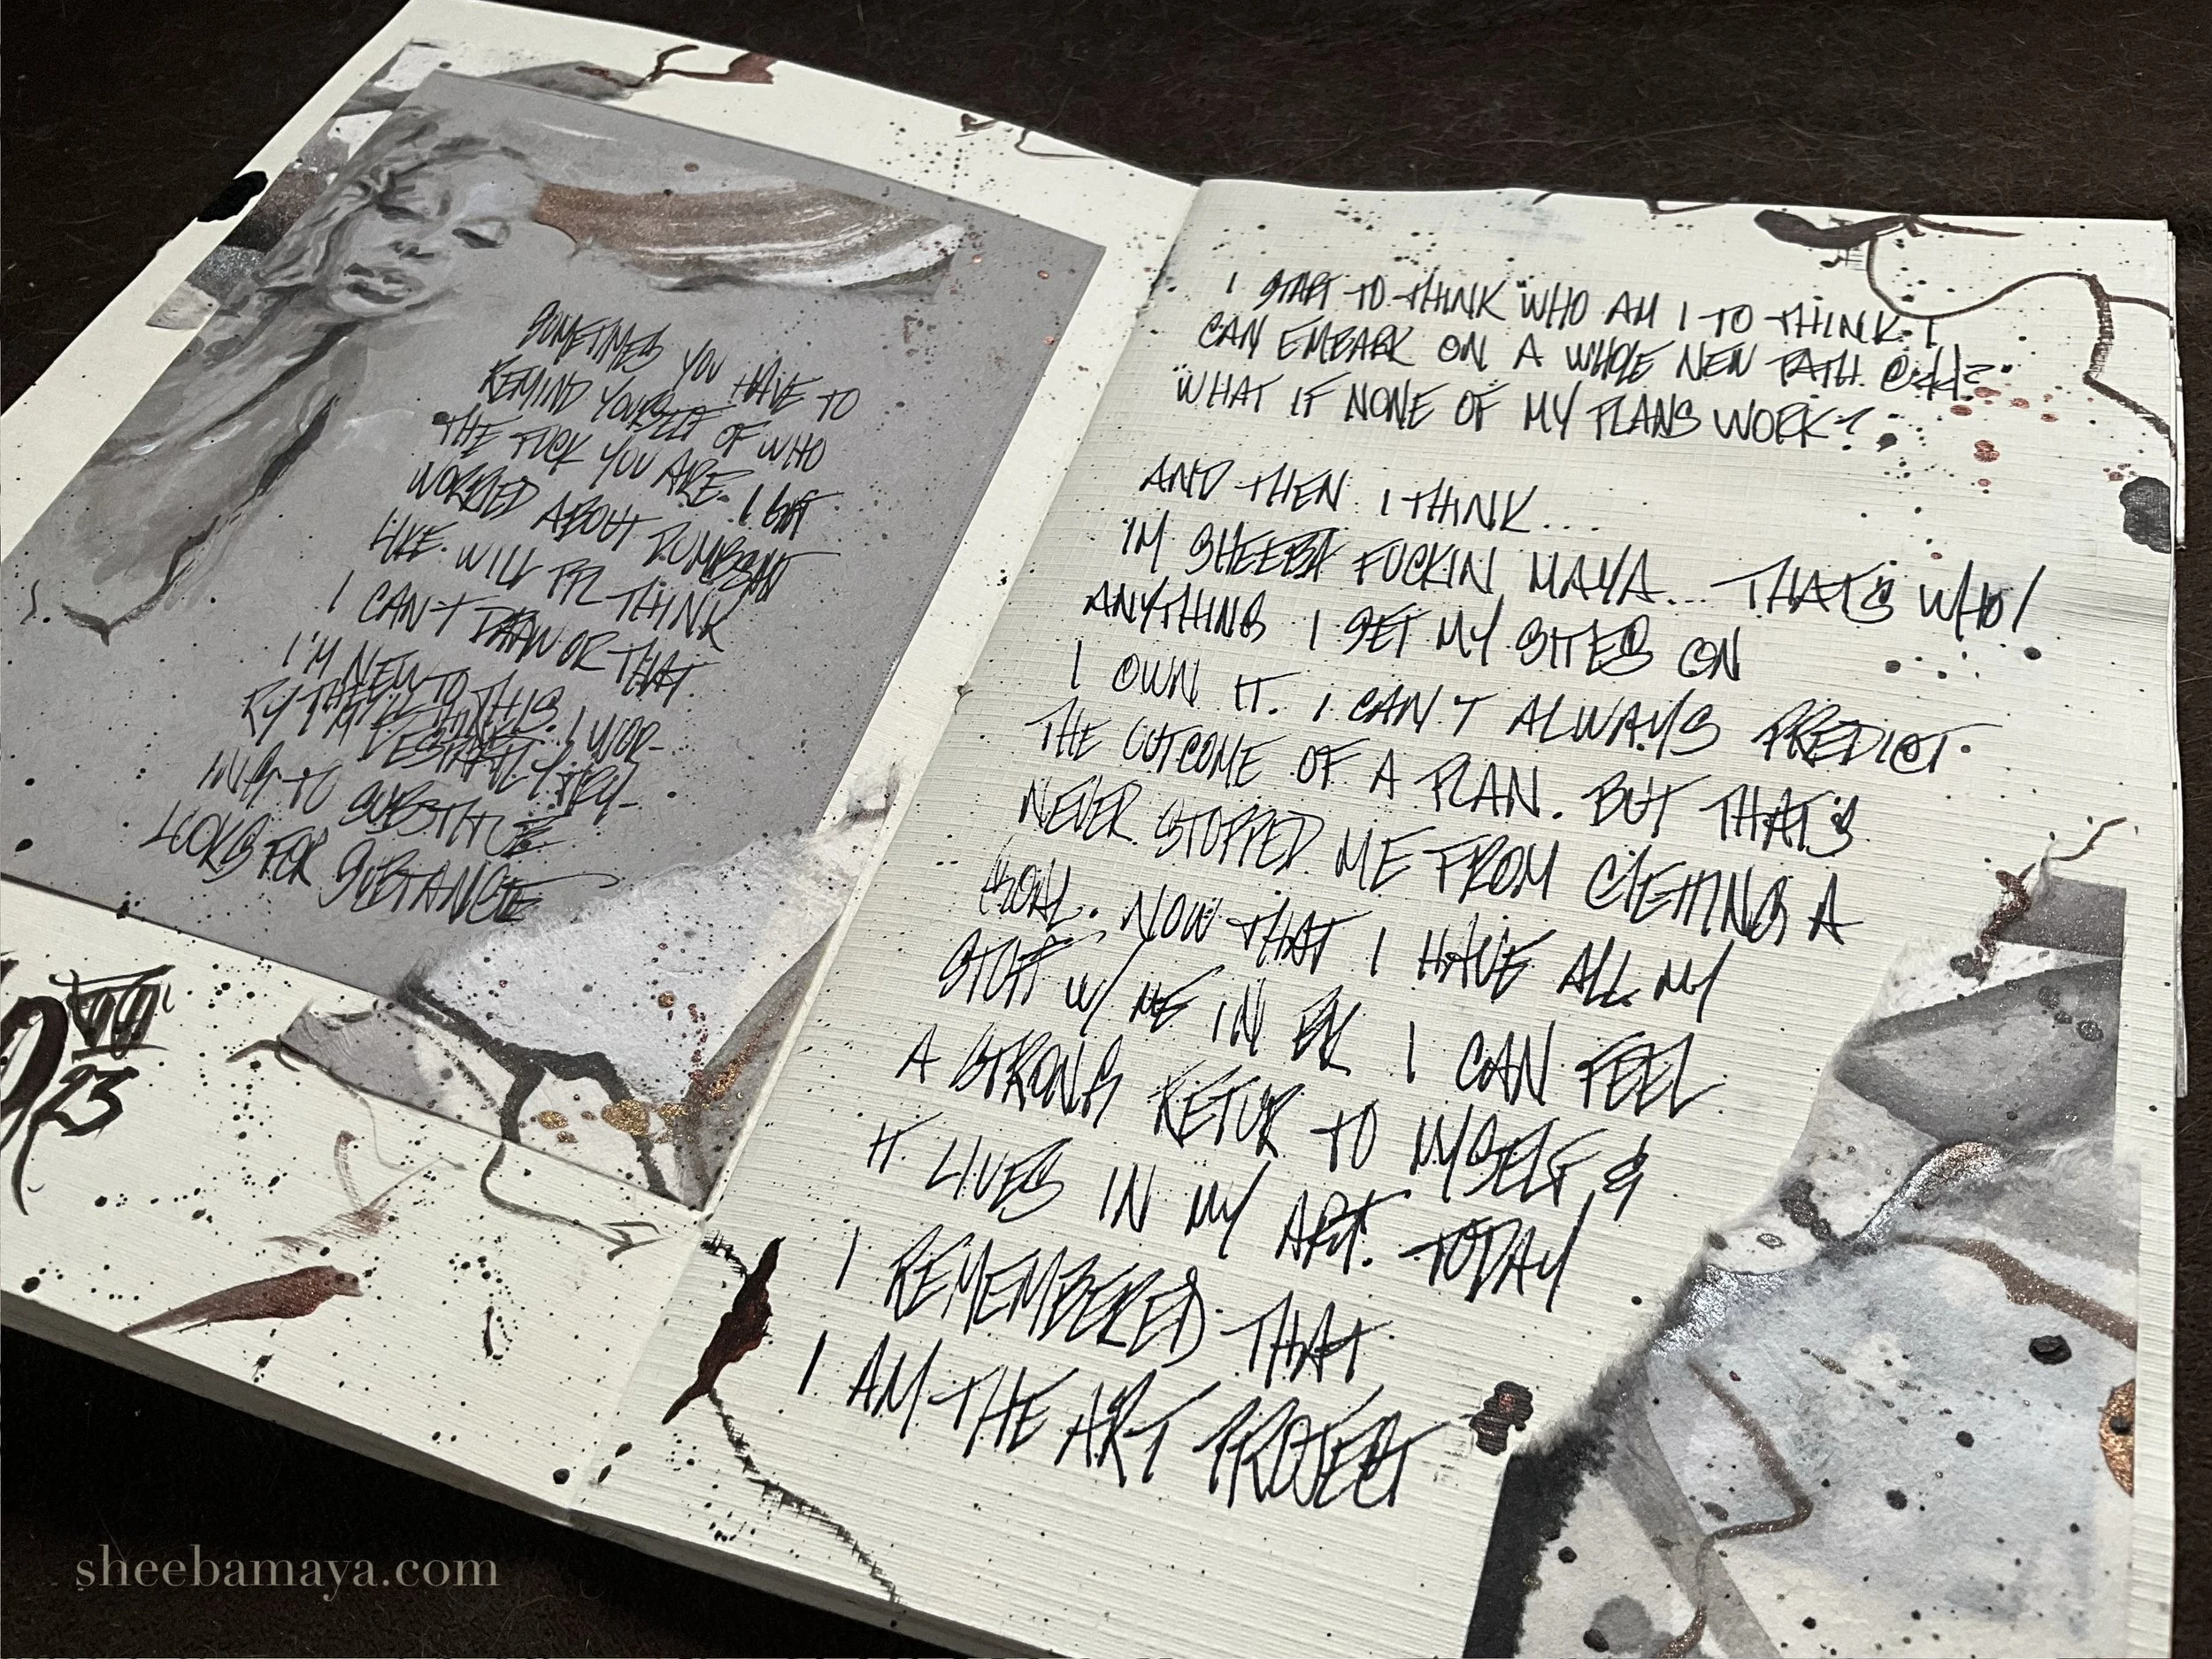 SOMETIMES YOU HAVE TO
REMIND YOURSELF OF WHO
THE FUCK YOU ARE. I GOT
WORRIED ABOUT DUMBSHIT
LIKE. WILL PPL THINK
I CAN'T DRAW OR THAT
I'M NEW TO THIS. I WOR-
RY THEY'LL THINK
I'M DESPRATLY TRY-
ING TO SUBSTITUE
LOOKS FOR SUBTANCE
23
I START TO THINK "WHO AM I TO THINK I
CAN EMBARK ON A WHOLE NEW PATH @44?"
"WHAT IF NONE OF MY PLANS WORK?
AND THEN I THINK...
I'M SHEEBA FUCKIN MAYA... THAT'S WHO!
ANYTHING I SET MY SITES ON
I OWN IT. I CAN'T ALWAYS PREDICT
THE OUTCOME OF A PLAN. BUT THAT'S
NEVER STOPPED ME FROM GETTING A
GOAL. NOW THAT I HAVE ALL MY
STUFF W/ ME IN BK I CAN FEEL
A STRONG RETUR TO MYSELF &
IT LIVES IN MY ART. TODAY
I REMEMBERED THAT
I AM THE ART PROJECT
sheebamaya.com